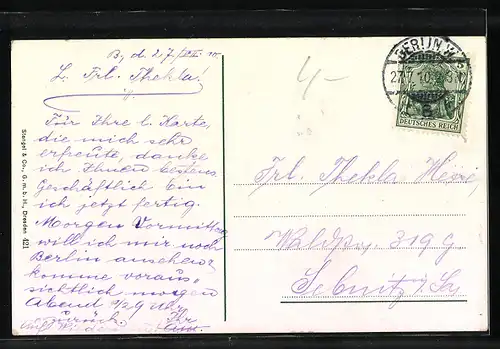 B. d. 27/VII. 10.
L. Frl. Thekla!
Für Ihre l. Karte,
die mich sehr
erfreute, danke
ich Ihnen bestens.
Geschäftlich bin
ich jetzt fertig.
Morgen Vormittag
will ich mir noch
Berlin ansehen,
komme voraus-
sichtlich morgen
Abend 1/29 Uhr
zurück. Ihr
Auf Wieder
Stengel & Co., G. m. b. H., Dresden 421
4/-
BERLIN W.
27.7.10.
DEUTSCHES REICH
Frl. Thekla
Waldstr. 319 G
Sebnitz i/Sa